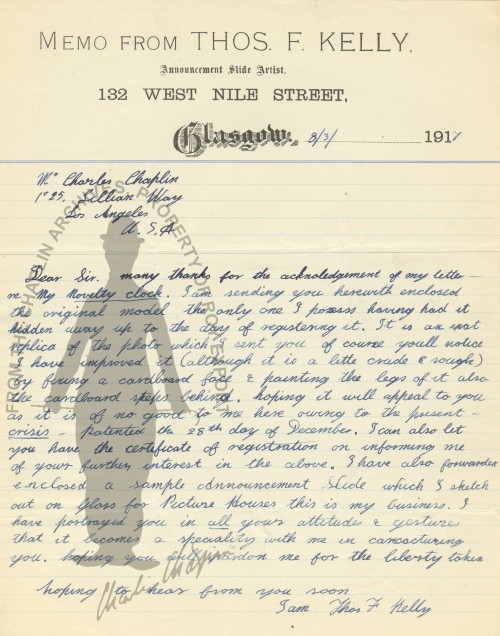 MEMO FROM THOS. F. KELLY.
Announcement Slide Artist.
132 WEST NILE STREET,
Glasgow. 8/3/ 1917
Mr Charles Chaplin
1025. Lillian Way
Los Angeles
U.S.A
Dear Sir. many thanks for the acknoledgement of my letter
re My Novelty clock. I am sending you herewith enclosed
the original model the only one I possess having had it
hidden away up to the day of registering it. It is an exat
replica of the photo which I sent you of course youll notice
I have improved it (although it is a little crude & rough)
by fixing a cardboard face & painting the legs of it also
the cardboard behind. hoping it will appeal to you
as it is of no good to me here owing to the present-
crisis. Patented the 28th day of December. I can also let
you have the certificate of registration on informing me
of your further interest in the above. I have also forwarded
enclosed a sample announcement slide which I sketch
out on Glass for Picture Houses this is my business. I
have portrayed you in all your attitudes & gestures
that it becomes a speciality with me in caricaturing
you. hoping you will pardon me for the liberty taken
hoping to hear from you soon
I am Thos F Kelly
FROM THE CHAPLIN ARCHIVES PROPERTY OF ROY EXPORT
Charlie Chaplin